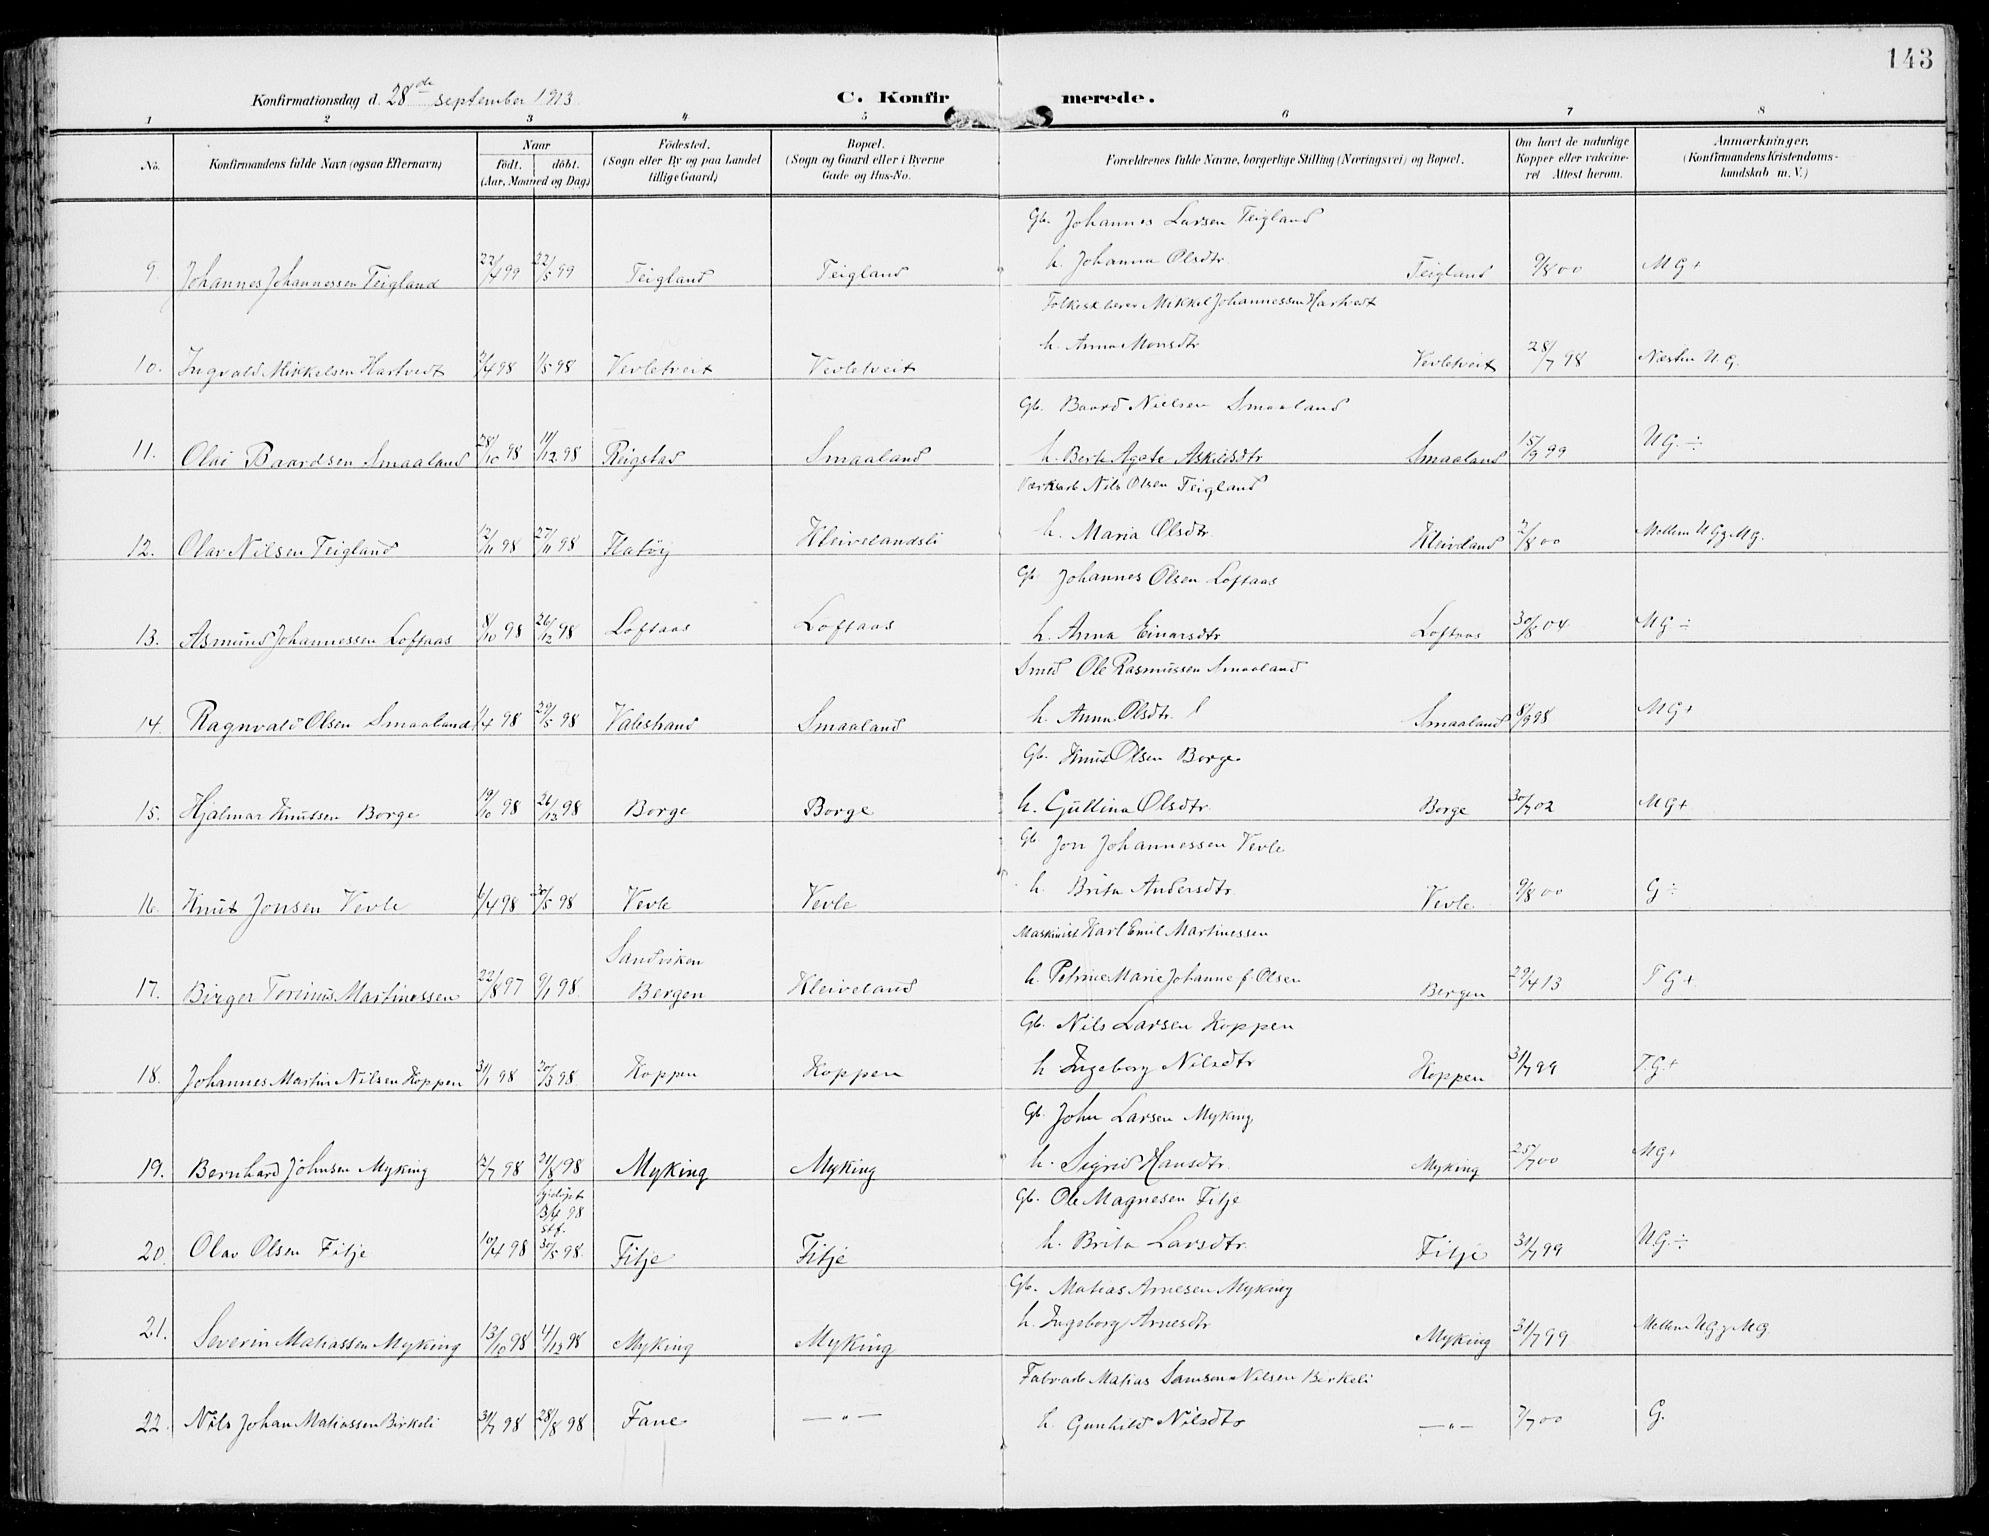 143
Konfirmationsdag d. 28de september 1913.
C. Konfirmerede.
1 2 3 4 5 6 7 8
No.
Konfirmandens fulde Navn (ogsaa Efternavn)
Naar
födt. döbt.
(Aar, Maaned og Dag)
Födested.
(Sogn eller By og paa Landet
tillige Gaard)
Bopæl.
(Sogn og Gaard eller i Byerne
Gade og Hus-No.
Forældrenes fulde Navne, borgerlige Stilling (Næringsvei) og Bopæl.
Om havt de naturlige
Kopper eller vakcine-
ret Attest herom.
Anmærkninger.
(Konfirmandens Kristendoms-
kundskab m. V.)
Gb. Johannes Larsen Teigland
9. Johannes Johannessen Teigland 22/4 99 22/5 99 Teigland Teigland h. Johanna Olsdtr. Teigland 9/8 00 M G+
Folkesklærer Mikkel Johannessen Hartvedt
10. Ingvald Mikkelsen Hartvedt 2/4 98 1/5 98 Vevletveit Vevletveit h. Anna Monsdtr Vevletveit 28/7 98 Næsten M.G.
Gb. Baard Nielsen Smaaland
11. Olai Baardsen Smaaland 28/10 98 11/12 98 Reigstad Smaaland h. Berte Agate Askildsdtr Smaaland 15/9 99 M G. ÷
Værksarb Nils Olsen Teigland
12. Olav Nilsen Teigland 12/11 98 27/11 98 Flatöy Kleivelandsli h. Maria Olsdtr. Kleivland 2/8 00 Mellem M G g M G.
Gb. Johannes Olsen Loftaas
13. Asmund Johannessen Loftaas 8/10 98 26/12 98 Loftaas Loftaas h. Anna Einarsdtr Loftaas 30/8 04 M G ÷
Smed Ole Rasmussen Smaaland
14. Ragnvald Olsen Smaaland 1/4 98 29/5 98 Valestrand Smaaland h. Anna Olsdtr. Smaaland 8/9 98 M G+
Gb. Knut Olsen Borge
15. Hjalmar Knutsen Borge 19/10 98 26/12 98 Borge Borge h. Gullina Olsdtr. Borge 30/7 02 M G+
Gb. Jon Johannessen Vevle
16. Knut Jonsen Vevle 6/4 98 30/5 98 Vevle Vevle h. Brita Andersdtr. Vevle 9/8 00 G ÷
Maskinist Karl Emil Martinessen
Sandviken
17. Birger Martinessen 22/8 97 9/1 98. Bergen Kleiveland h. Petrine Marie Johanne f Olsen Bergen 29/4 13 T G +
Gb. Nils Larsen Koppen
18. Johannes Martin Nilsen Koppen 31/1 98 20/3 98. Koppen Koppen h Ingeborg Nilsdtr Koppen 31/7 99 T.G.+
Gb. John Larsen Myking
19. Bernhard Johnsen Myking 12/7 98 21/8 98 Myking Myking h. Sigrid Hansdtr. Myking 25/7 00 M G+
Gb. Ole Magnesen Fitje
hjdöpt
13/4 98
stf.
20. Olav Olsen Fitje 10/4 98 30/5 98. Fitje Fitje h. Brita Larsdtr. Fitje 31/7 99 M G. ÷
Gb. Matias Arnesen Myking
21. Severin Matiassen Myking 13/10 98 4/12 98 Myking Myking h. Ingeborg Arnesdtr Myking 31/7 99 Mellem M G g M G.
Fabrarb Matias Samson Nilsen Birkeli
22. Nils Johan Matiassen Birkeli 31/7 98 28/8 98 Fane —„— h. Gunhild Nilsdtr —„— 7/7 00 G.